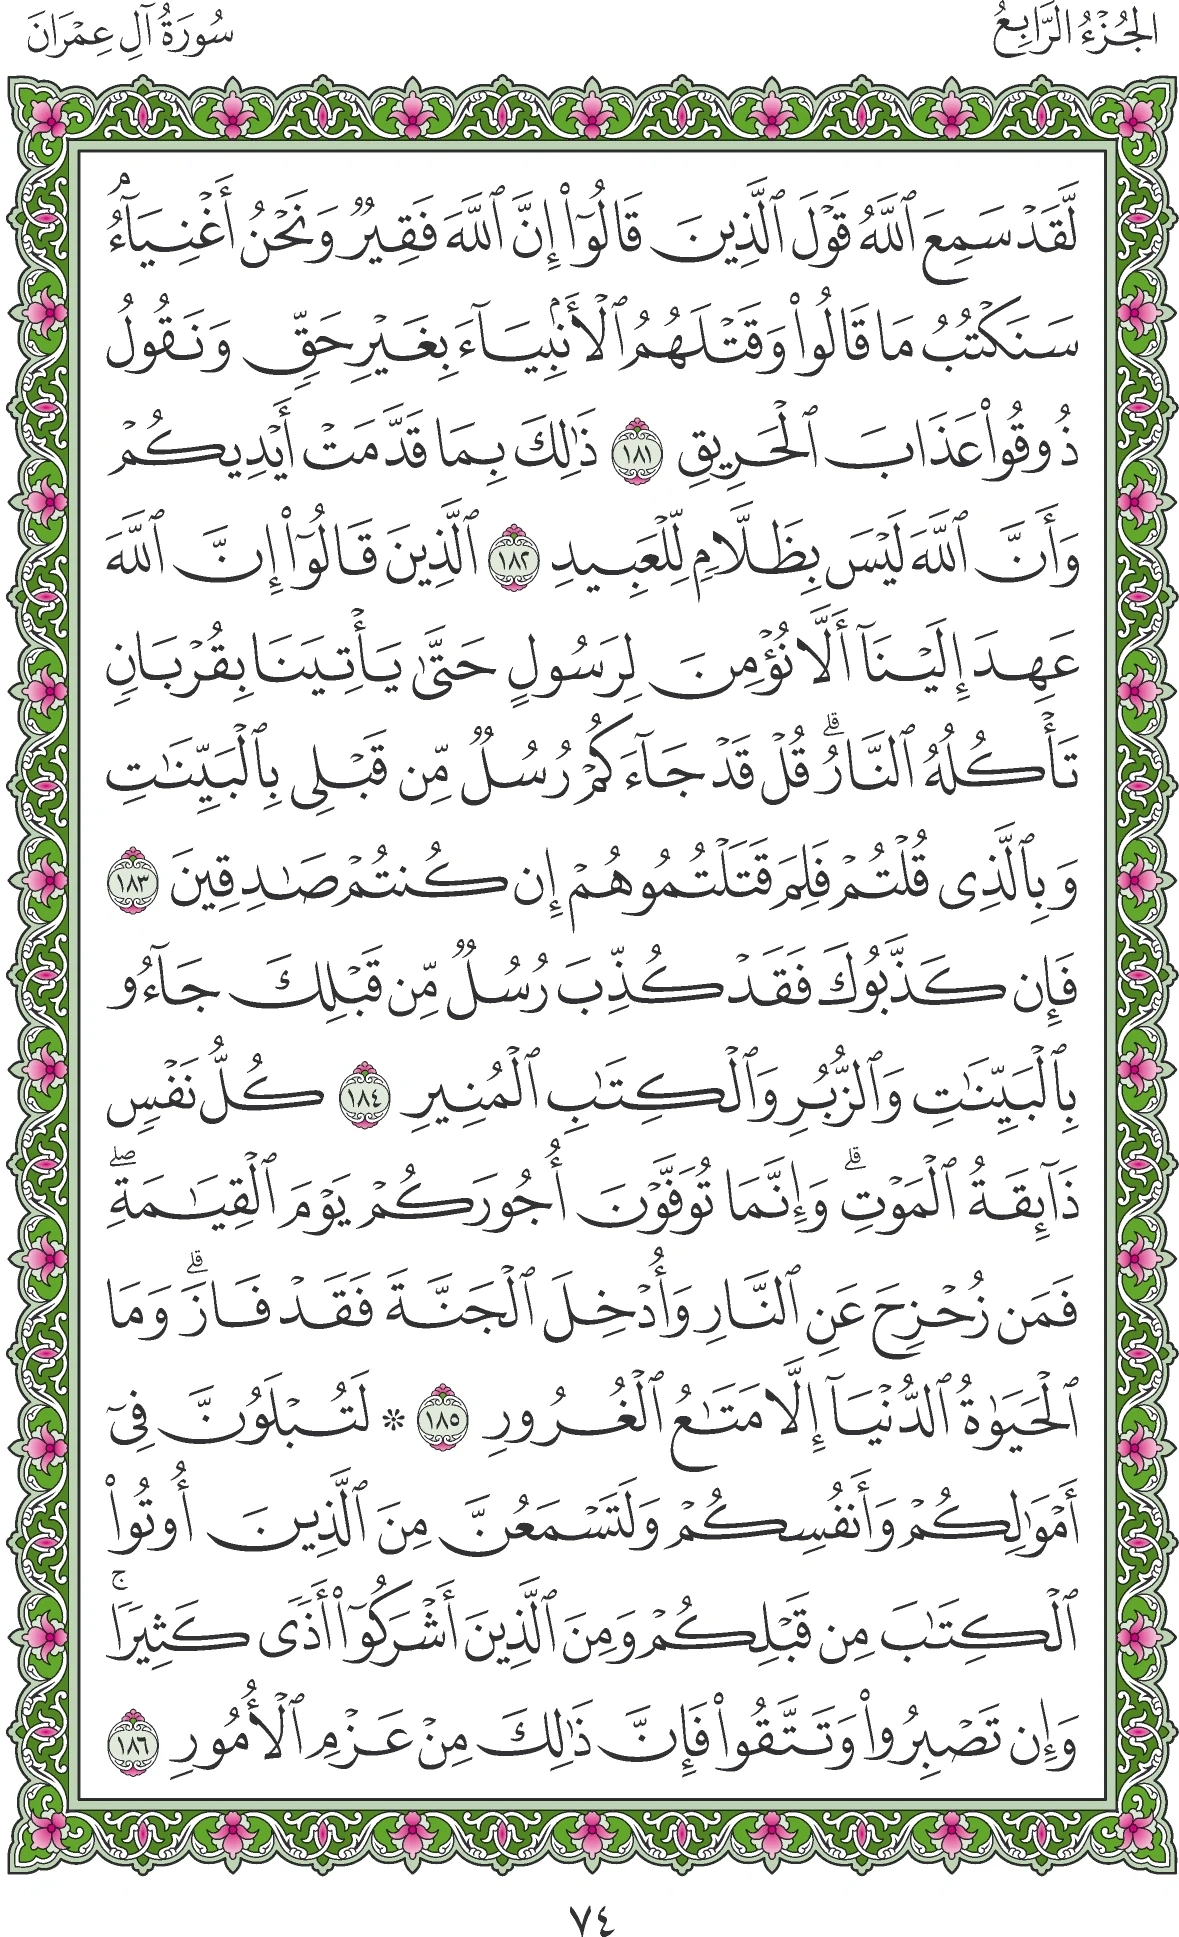 الجُزْءُ الرَّابِعُ
سُورَةُ آلِ عِمْرَانَ
لَّقَدْ سَمِعَ ٱللَّهُ قَوْلَ ٱلَّذِينَ قَالُوٓا۟ إِنَّ ٱللَّهَ فَقِيرٌ وَنَحْنُ أَغْنِيَآءُ ۘ
سَنَكْتُبُ مَا قَالُوا۟ وَقَتْلَهُمُ ٱلْأَنۢبِيَآءَ بِغَيْرِ حَقٍّ وَنَقُولُ
ذُوقُوا۟ عَذَابَ ٱلْحَرِيقِ ١٨١ ذَٰلِكَ بِمَا قَدَّمَتْ أَيْدِيكُمْ
وَأَنَّ ٱللَّهَ لَيْسَ بِظَلَّامٍ لِّلْعَبِيدِ ١٨٢ ٱلَّذِينَ قَالُوٓا۟ إِنَّ ٱللَّهَ
عَهِدَ إِلَيْنَآ أَلَّا نُؤْمِنَ لِرَسُولٍ حَتَّىٰ يَأْتِيَنَا بِقُرْبَانٍ
تَأْكُلُهُ ٱلنَّارُ ۗ قُلْ قَدْ جَآءَكُمْ رُسُلٌ مِّن قَبْلِى بِٱلْبَيِّنَٰتِ
وَبِٱلَّذِى قُلْتُمْ فَلِمَ قَتَلْتُمُوهُمْ إِن كُنتُمْ صَٰدِقِينَ ١٨٣
فَإِن كَذَّبُوكَ فَقَدْ كُذِّبَ رُسُلٌ مِّن قَبْلِكَ جَآءُو
بِٱلْبَيِّنَٰتِ وَٱلزُّبُرِ وَٱلْكِتَٰبِ ٱلْمُنِيرِ ١٨٤ كُلُّ نَفْسٍ
ذَآئِقَةُ ٱلْمَوْتِ ۗ وَإِنَّمَا تُوَفَّوْنَ أُجُورَكُمْ يَوْمَ ٱلْقِيَٰمَةِ ۖ
فَمَن زُحْزِحَ عَنِ ٱلنَّارِ وَأُدْخِلَ ٱلْجَنَّةَ فَقَدْ فَازَ ۗ وَمَا
ٱلْحَيَوٰةُ ٱلدُّنْيَآ إِلَّا مَتَٰعُ ٱلْغُرُورِ ١٨٥ ۞ لَتُبْلَوُنَّ فِىٓ
أَمْوَٰلِكُمْ وَأَنفُسِكُمْ وَلَتَسْمَعُنَّ مِنَ ٱلَّذِينَ أُوتُوا۟
ٱلْكِتَٰبَ مِن قَبْلِكُمْ وَمِنَ ٱلَّذِينَ أَشْرَكُوٓا۟ أَذًى كَثِيرًا ۚ
وَإِن تَصْبِرُوا۟ وَتَتَّقُوا۟ فَإِنَّ ذَٰلِكَ مِنْ عَزْمِ ٱلْأُمُورِ ١٨٦
٧٤